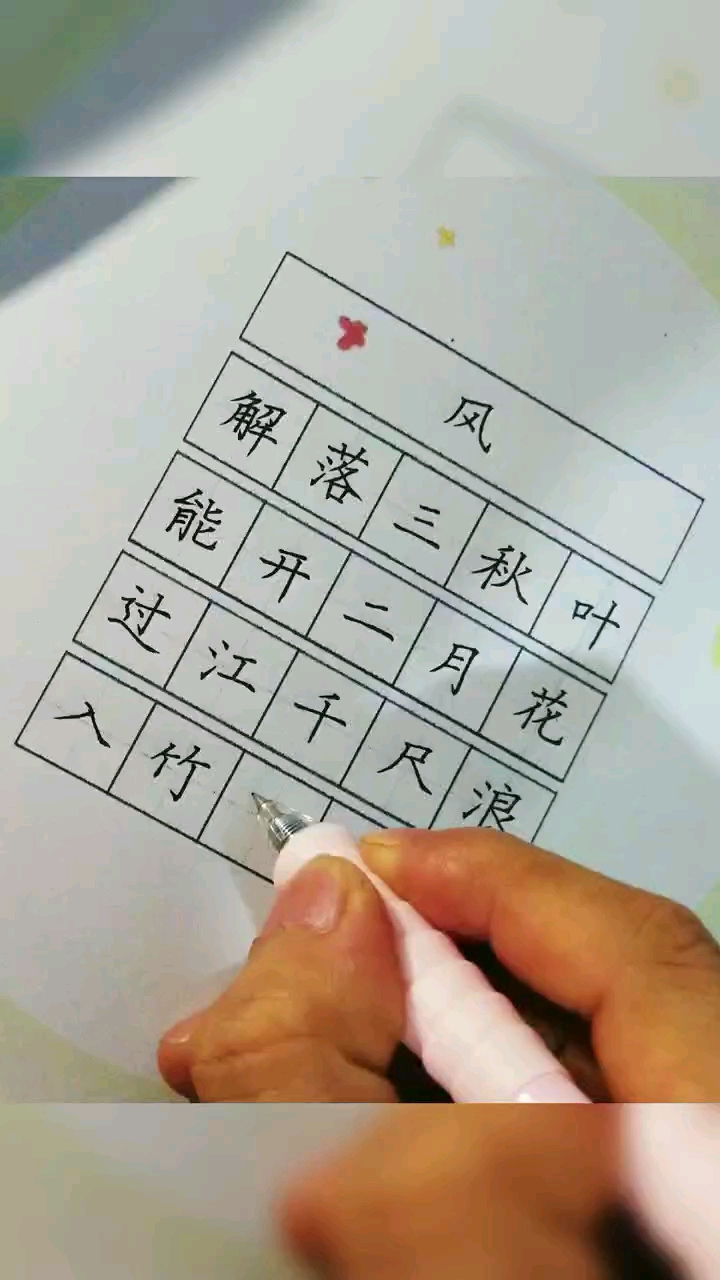 风
解落三秋叶
能开二月花
过江千尺浪
入竹